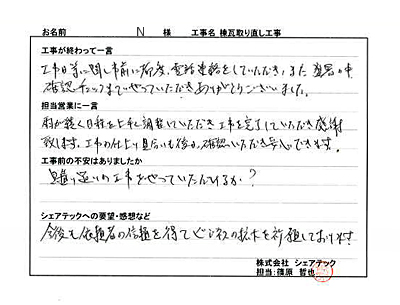 お名前 N 様 工事名 棟瓦取り直し工事
工事が終わって一言
工事日等に関し事前に都度、電話連絡をしていただき、また 写真の
確認チェックまでやっていただきありがとうございました。
担当営業に一言
雨が続く日程を上手く調整いただき工事を完了していただき感謝
致します。工事の仕上り具合いも後から確認いただき安心できます。
工事前の不安はありましたか
見積り通りの工事をやっていただけるか?
シェアテックへの要望・感想など
今後も依頼者の信頼を得てビジネスの拡大を祈願しております
株式会社 シェアテック
担当:篠原 哲也